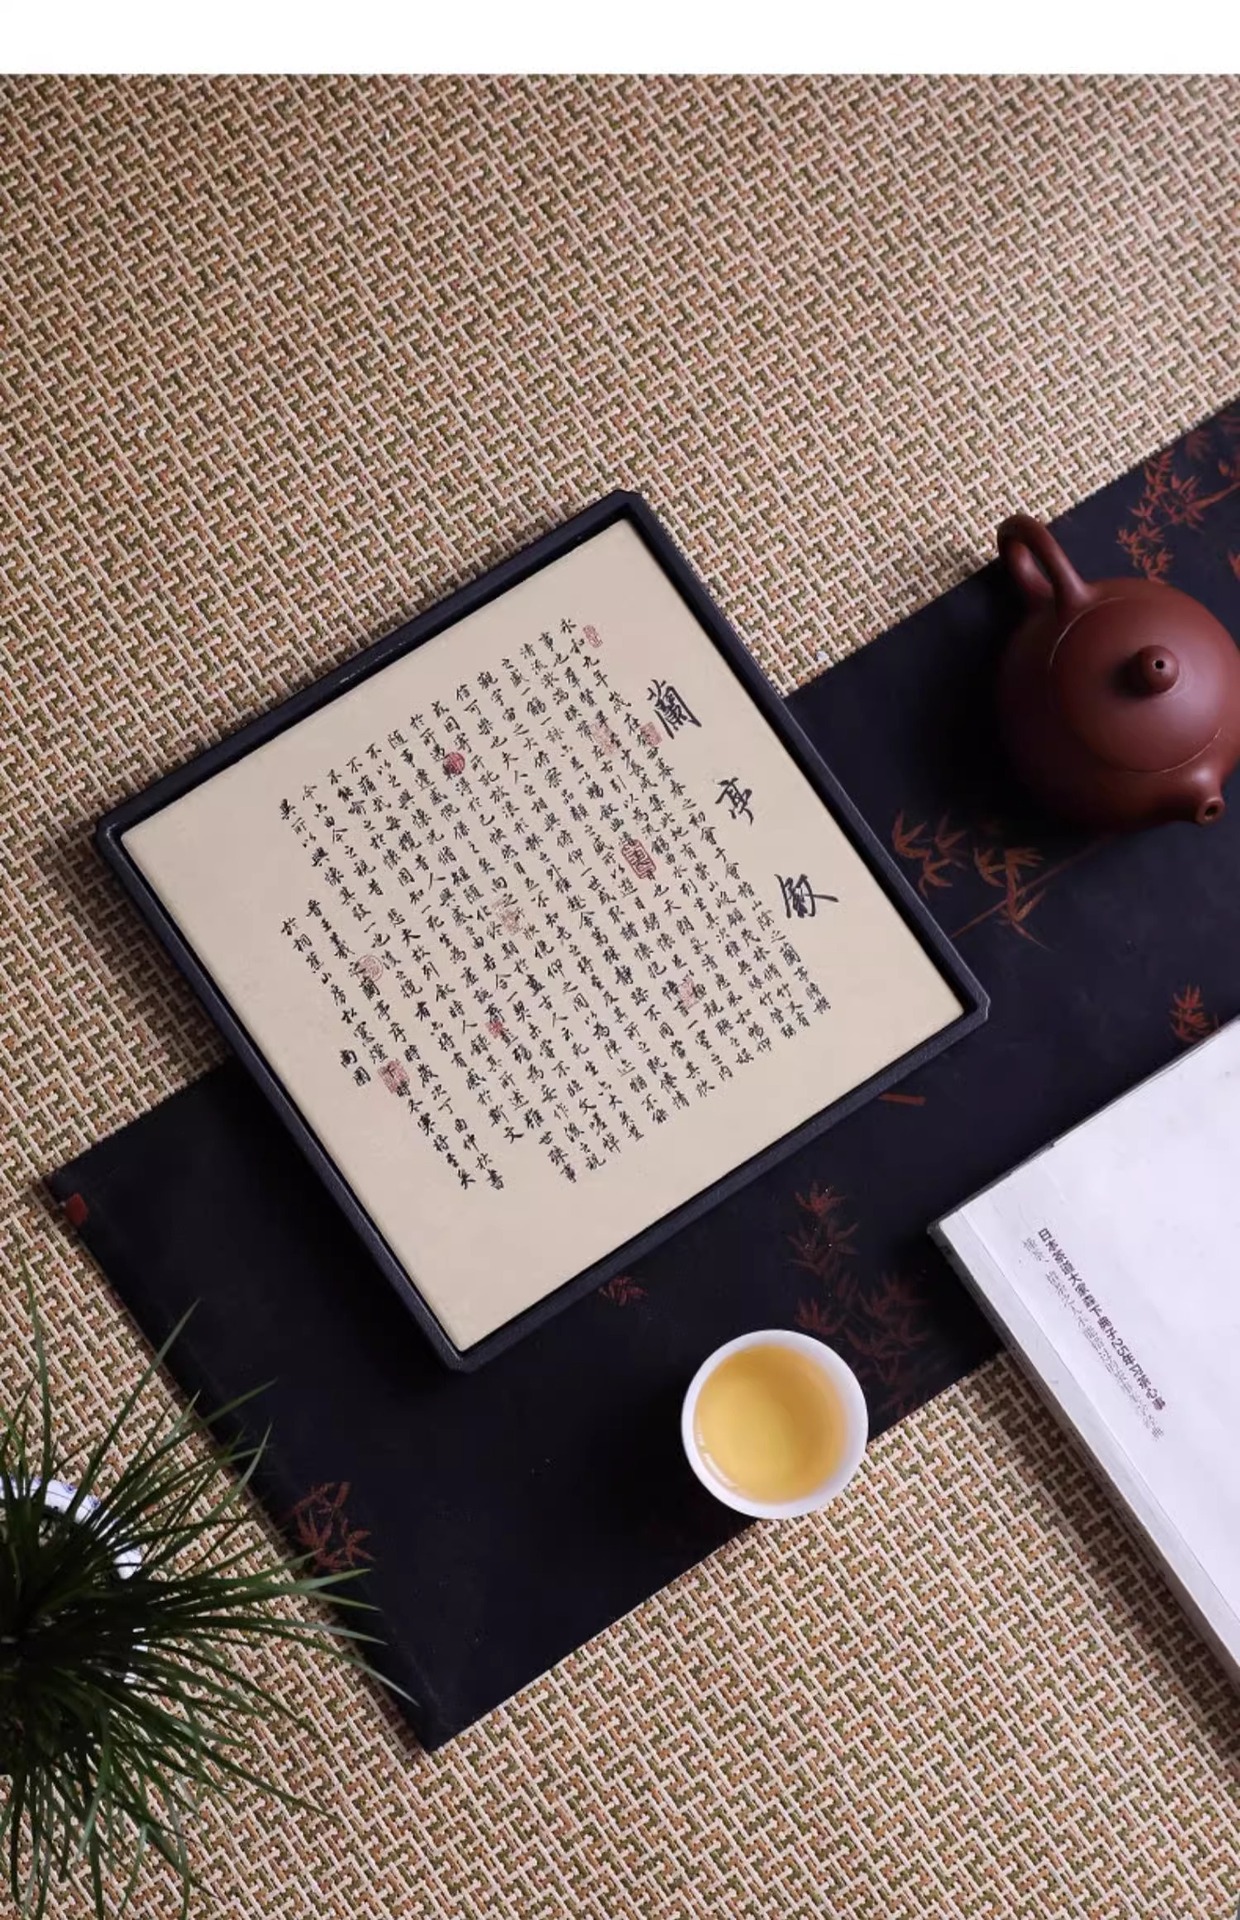 蘭亭敘
永和九年歲在癸丑暮春之初會于會稽山陰之蘭亭脩禊
事也羣賢畢至少長咸集此地有崇山峻領茂林脩竹又有
清流激湍暎帶左右引以為流觴曲水列坐其次雖無絲竹管弦
之盛一觴一詠亦足以暢敘幽情是日也天朗氣清惠風和暢仰
觀宇宙之大俯察品類之盛所以遊目騁懷足以極視聽之娛
信可樂也夫人之相與俯仰一世或取諸懷抱悟言一室之內
或因寄所託放浪形骸之外雖趣舍萬殊靜躁不同當其欣
於所遇暫得於己快然自足不知老之將至及其所之既惓情
隨事遷感慨係之矣向之所欣俛仰之間以為陳迹猶不能
不以之興懷況脩短隨化終期於盡古人云死生亦大矣豈
不痛哉每攬昔人興感之由若合一契未嘗不臨文嗟悼
不能喻之於懷固知一死生為虛誕齊彭殤為妄作後之視
今亦由今之視昔悲夫故列敘時人錄其所述雖世殊事
異所以興懷其致一也後之攬者亦將有感於斯文
晉王羲之蘭亭序時歲次丁酉仲秋書
於山房松窗燈時冬寒將至矣
南園
日本茶道大家森下典子25年习茶心得
懂茶、惜茶之人不能错过的茶道美学经典